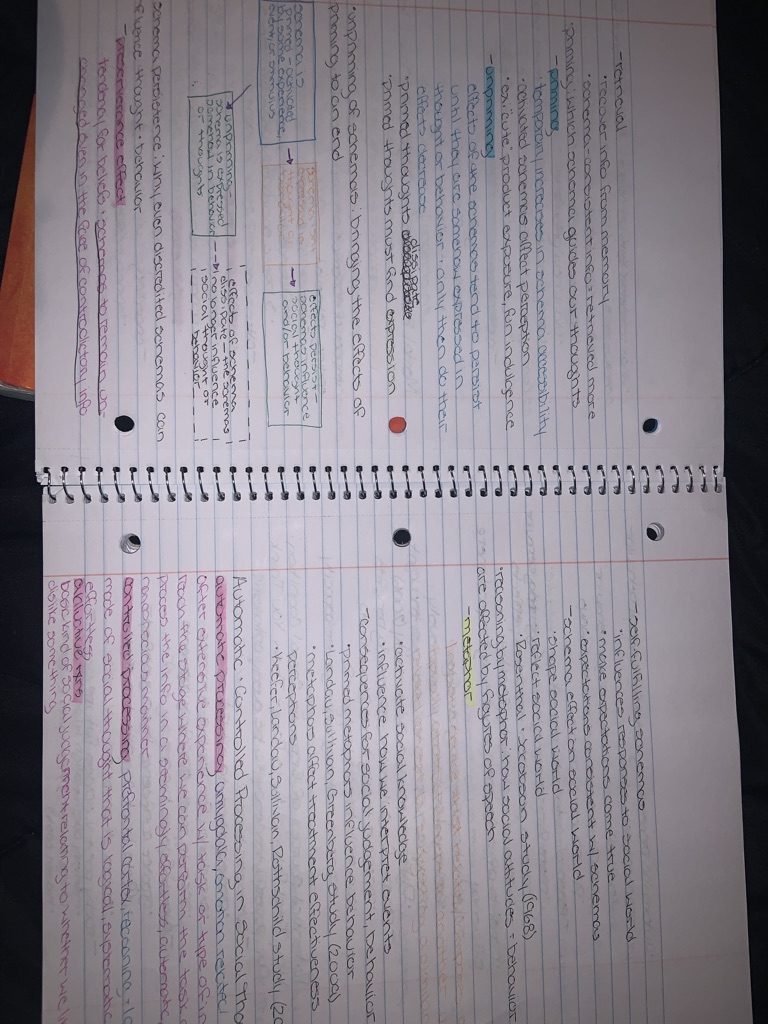 -retrieval
·recover info from memory
·schema-consistent info = retrieved more
·priming: which schema guides our thoughts
-priming
·temporary increases in schema accessibility
·activated schemas affect perception
·ex: "cute" product exposure, fun indulgence
-unpriming
effects of the schemas tend to persist
until they are somehow expressed in
thought or behavior · only then do their
effects decrease
·primed thoughts dissipate
·primed thoughts must find expression
·unpriming of schemas: bringing the effects of
priming to an end
schema is
primed - activated
by some experience,
event, or stimulus
effects persist -
schemas influence
social thought
and/or behavior
unpriming -
schema is expressed
somehow in behavior
or thoughts
effects of schema
dissipate - the schemas
no longer influence
social thought or
behavior
schema persistence: why even discredited schemas can
influence thought + behavior
-perseverance effect
tendency for beliefs + schemas to remain un-
changed even in the face of contradictory info
-self-fulfilling schemas
·influences responses to social world
·make expectations come true
·expectations consistent w/ schemas
-schema effect on social world
·shape social world
·reflect social world
·Rosenthal + Jacobson study (1968)
·reasoning by metaphor: how social attitudes + behavior
are affected by figures of speech
-metaphor
·activate social knowledge
·influence how we interpret events
-consequences for social judgement, behavior
·primed metaphors influence behavior
·Landau, Sullivan, Greenberg study (2009)
·metaphors affect treatment effectiveness
perceptions
·Keefer, Landau, Sullivan, Rothschild study (20
Automatic + Controlled Processing in Social Tho
automatic processing amygdala, emotion related
after extensive experience w/ task or type of in
reach the stage where we can perform the task o
process the info in a seemingly effortless, automatic,
nonconscious manner
controlled processing prefrontal cortex, reasoning + lo
mode of social thought that is logical, systematic
effortless
evaluative
basic kind of social judgement relating to whether we li
dislike something